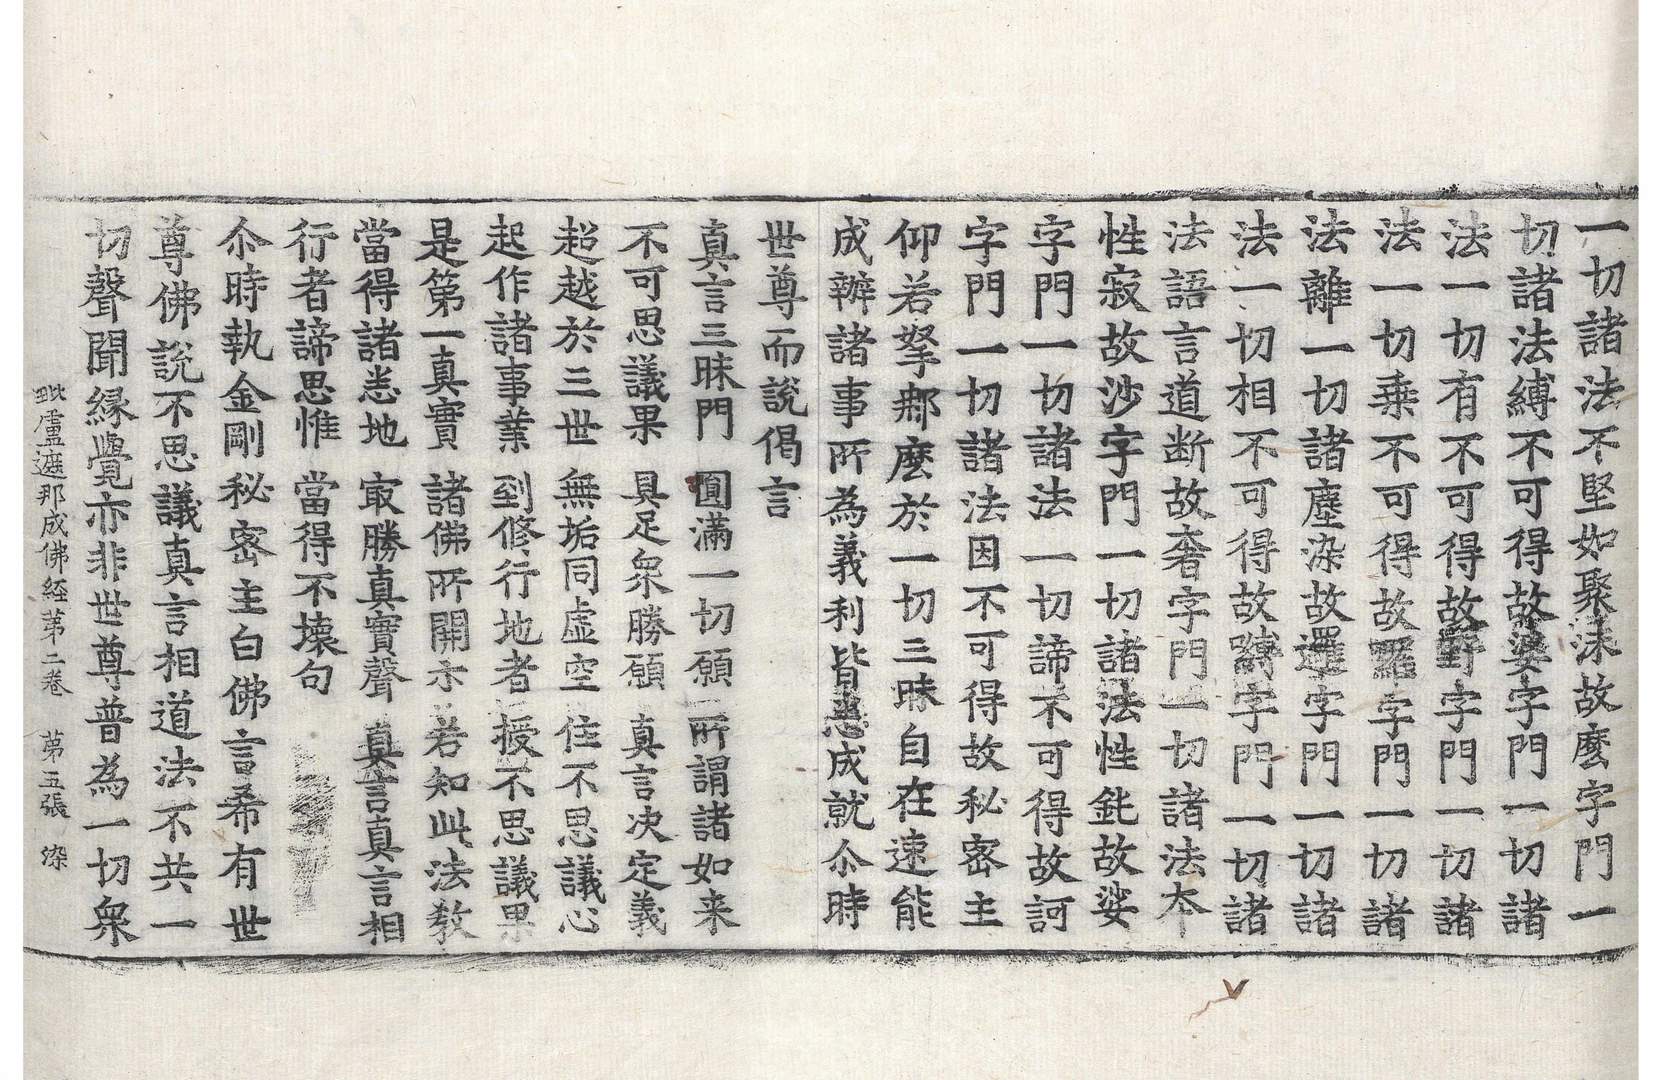 一切諸法不堅如聚沫故麼字門一
切諸法縛不可得故婆字門一切諸
法一切有不可得故野字門一切諸
法一切乗不可得故囉字門一切諸
法離一切諸塵染故邏字門一切諸
法一切相不可得故嚩字門一切諸
法語言道断故奢字門一切諸法夲
性寂故沙字門一切諸法性鈍故娑
字門一切諸法一切諦不可得故訶
字門一切諸法因不可得故秘密主
仰若拏那麼於一切三昧自在速能
成辦諸事所為義利皆悉成就尒時
世尊而說偈言
真言三昧門 圎滿一切願 所謂諸如来
不可思議果 具足衆勝願 真言决定義
超越於三世 無垢同虛空 住不思議心
起作諸事業 到修行地者 授不思議果
是第一真實 諸佛所開示 若知此法教
當得諸悉地 㝡勝真實聲 真言真言相
行者諦思惟 當得不壊句
尒時執金剛秘密主白佛言希有世
尊佛說不思議真言相道法不共一
切聲聞縁覺亦非世尊普為一切衆
毗盧遮那成佛經第二卷 第五張 染